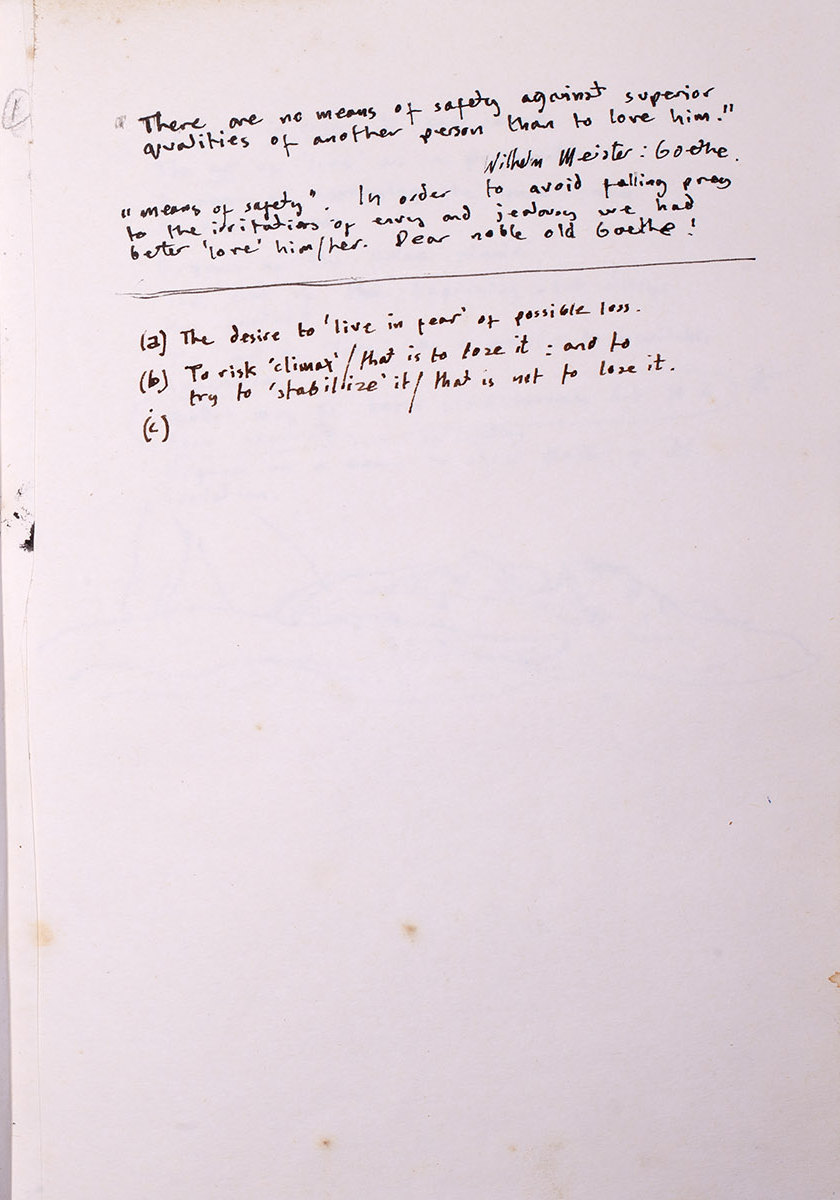 1
"There are no means of safety against superior
qualities of another person than to love him."
Wilhelm Meister : Goethe.
"means of safety". In order to avoid falling prey
to the irritations of envy and jealousy we had
better 'love' him/her. Dear noble old Goethe!
(a) The desire to 'live in fear' of possible loss.
(b) To risk 'climax' / that is to lose it : and to
try to 'stabilize' it / that is not to lose it.
(c)